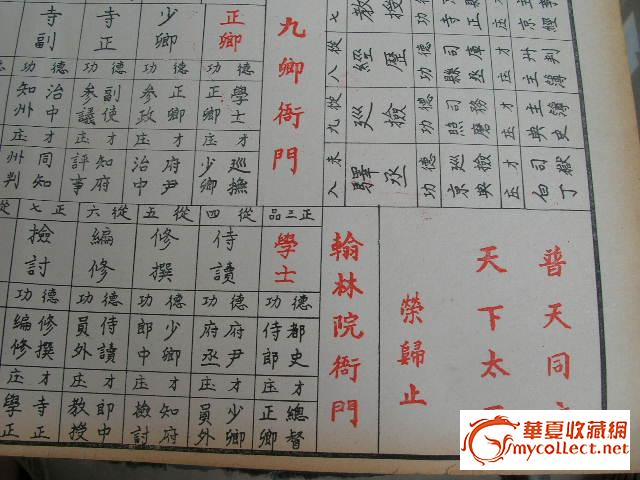 七 教授 德功
從八 經歷 德功 司庫 縣丞 才庄 州判 主簿
從九 巡檢 德功 司務 照磨 才庄 主簿 典史
未八 驛丞 德功 巡檢 京典 才庄 司獄 白丁
九卿衙門
正卿 德功 學士 正卿 才庄 巡撫 少卿
少卿 德功 正卿 參政 才庄 府尹 治中
寺正 德功 副使 參議 才庄 知府 評事
寺副 德功 治中 知州 才庄 同知 州判
普天同
天下太
榮歸止
翰林院衙門
正三品 學士 德功 都史 侍郎 才庄 總督 正卿
從四 侍讀 德功 府尹 府丞 才庄 少卿 員外
從五 修撰 德功 少卿 郎中 才庄 知府 檢討
從六 編修 德功 侍讀 員外 才庄 郎中 教授
正七 檢討 德功 修撰 編修 才庄 寺正 學正
華夏收藏網
mycollect.net